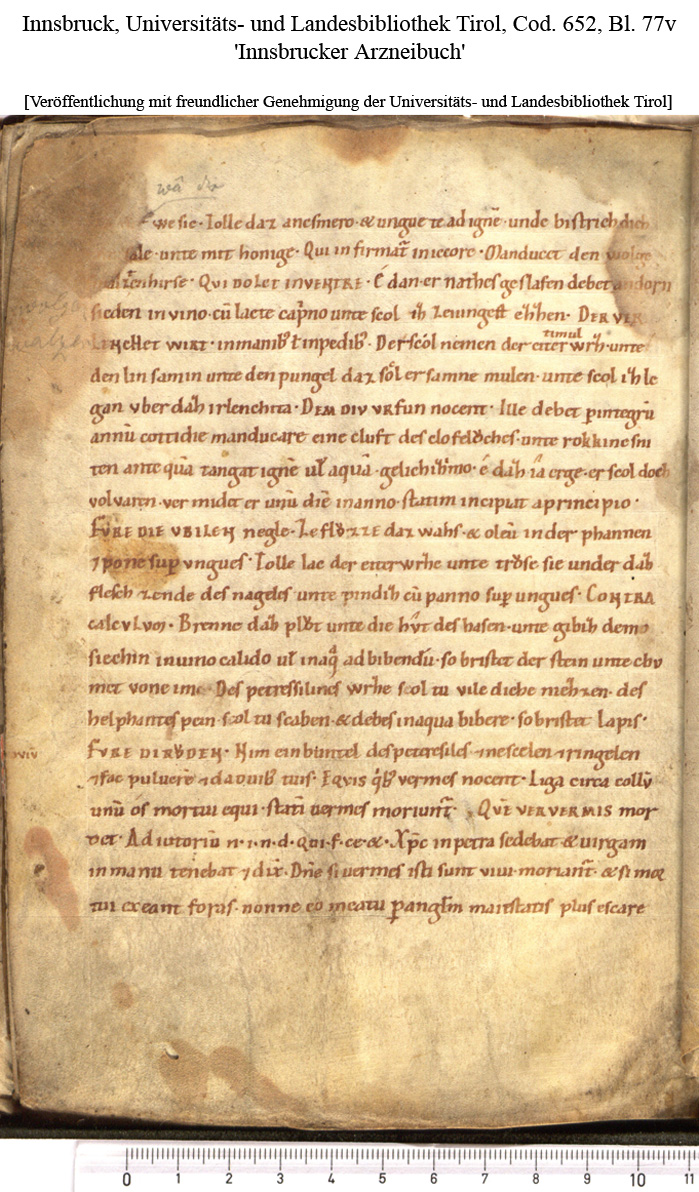 Innsbruck, Universitäts- und Landesbibliothek Tirol, Cod. 652, Bl. 77v
'Innsbrucker Arzneibuch'
[Veröffentlichung mit freundlicher Genehmigung der Universitäts- und Landesbibliothek Tirol]
we sie · Tolle daz anesmero · & ungue te ad ignē · unde bistrich dich
unte mit honige · Qui infirmat᷑ in iecore · Manducet den
Qui dolet in ventre · E dan er nahtes geslafen debet andorn
sieden in vino · cū lacte cap̄no unte scol
wirt · in manib᷒ ł in pedib᷒ · Der scol nemen der citer unte
timul
den lin samin unte den pungel daz sol er samne mulen · unte scol
gan vber irlenchita · Dem div vrsun nocent · Ille debet ꝑ integrū
annū cottidie manducare eine cluft des clofelóches · unte rokkine sni
ten ante quā tangat ignē uł aquā · erge · er scol doch
volvaren · vermidet er unū diē in anno · statim incipiat a principio ·
Fvre die vbilen negle · Zeflozze daz wahs · & oleū in der phannen
⁊ pone suꝑ vngues · Tolle lac der unte sie under
flesch zende des nageles unte cū panno suꝑ ungues · Contra
calcvlvm · Brenne plót unte die hvt des hasen · unte gibiz demo
siechin in vino calido uł in aq̄ ad bibendū · so bristet der stein unte chv
met vone ime · Des petressilines scol tu vile diche niezzen · des
helphantes pein · scol tu scaben · & debes in aqua bibere · so bristet lapis ·
Fvre die rvden · Nim ein buntel des peteresiles ⁊ nescelen ⁊ ringelen
⁊ fac pulverē ⁊ da ovib᷒ tuis · Eqvis qib᷒ vermes nocent · Liga circa collū
unū os mortui equi · stati vermes moriunt᷑ · Quē ver vermis mor
det · Adiutoriū n · i · n · d · qui · f · ce · & · Xp̄c in petra sedebat & virgam
in manu tenebat ⁊ dix̄ · Dn̄e si vermes isti sunt vivi moriant᷑ · & si mor
tui exeant foras · nonne eo meatu ꝑ angłm maiestatis plus escare
0 1 2 3 4 5 6 7 8 9 10 11